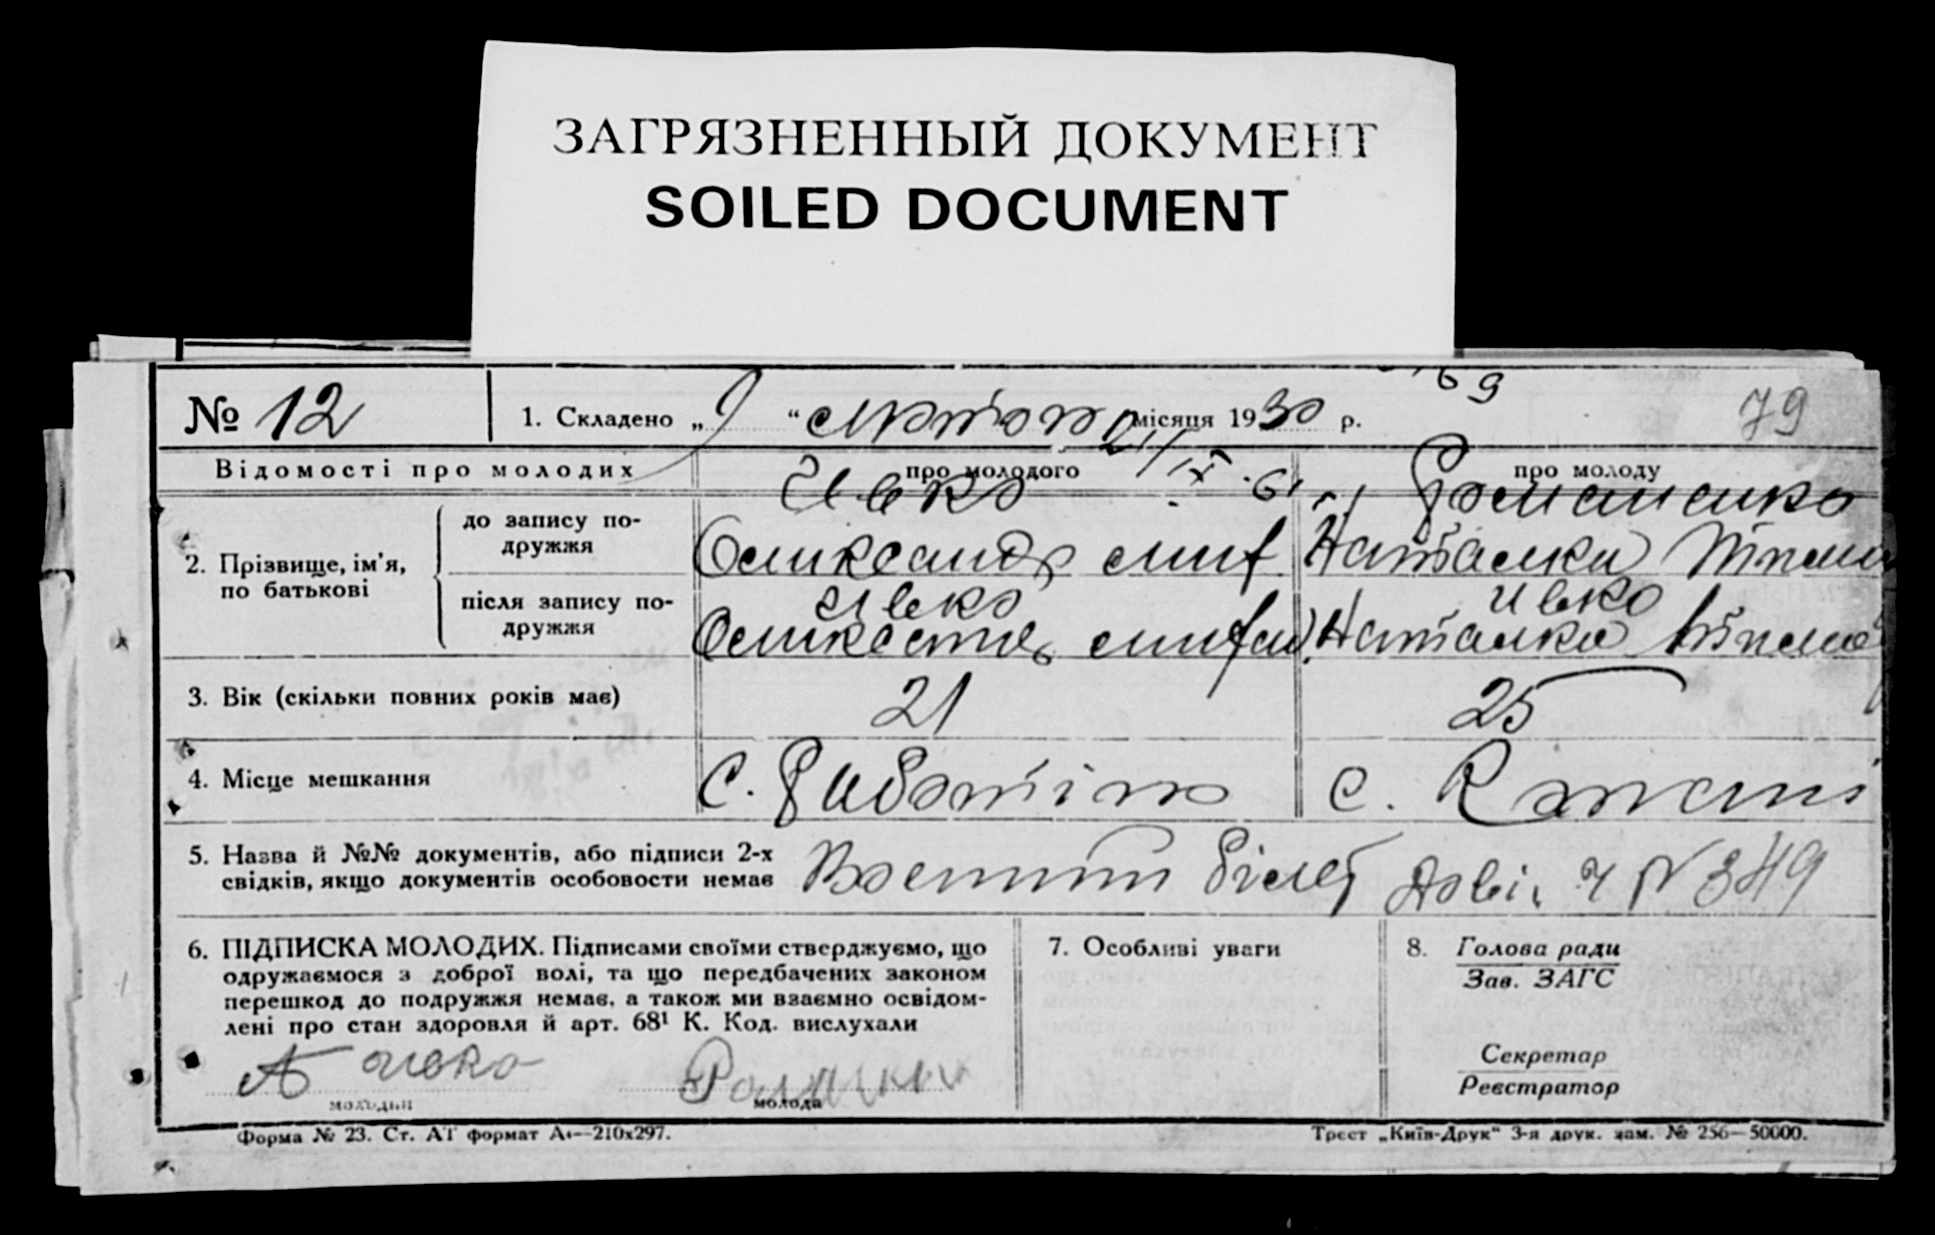 ЗАГРЯЗНЕННЫЙ ДОКУМЕНТ
SOILED DOCUMENT
69
79
№ 12
1. Складено „ 9 “ місяця 1930 р.
Відомості про молодих
про молодого
про молоду
Ивко
Романенко
2. Прізвище, ім'я, по батькові
до запису по-
дружжя
Наталка
після запису по-
дружжя
Ивко
Ивко
Наталка
3. Вік (скільки повних років має)
21
25
4. Місце мешкання
с.
с.
5. Назва й №№ документів, або підписи 2-х
свідків, якщо документів особовости немає
білет Дові. Ч N 349
6. ПІДПИСКА МОЛОДИХ. Підписами своїми стверджуємо, що
одружаємося з доброї волі, та що передбачених законом
перешкод до подружжя немає, а також ми взаємно освідом-
лені про стан здоровля й арт. 68¹ К. Код. вислухали
А Ивко
молодий
молода
7. Особливі уваги
8. Голова ради
Зав. ЗАГС
Секретар
Реєстратор
Форма № 23. Ст. АТ формат А₄—210x297.
Трест „Київ-Друк“ 3-я друк. зам. № 256—50000.